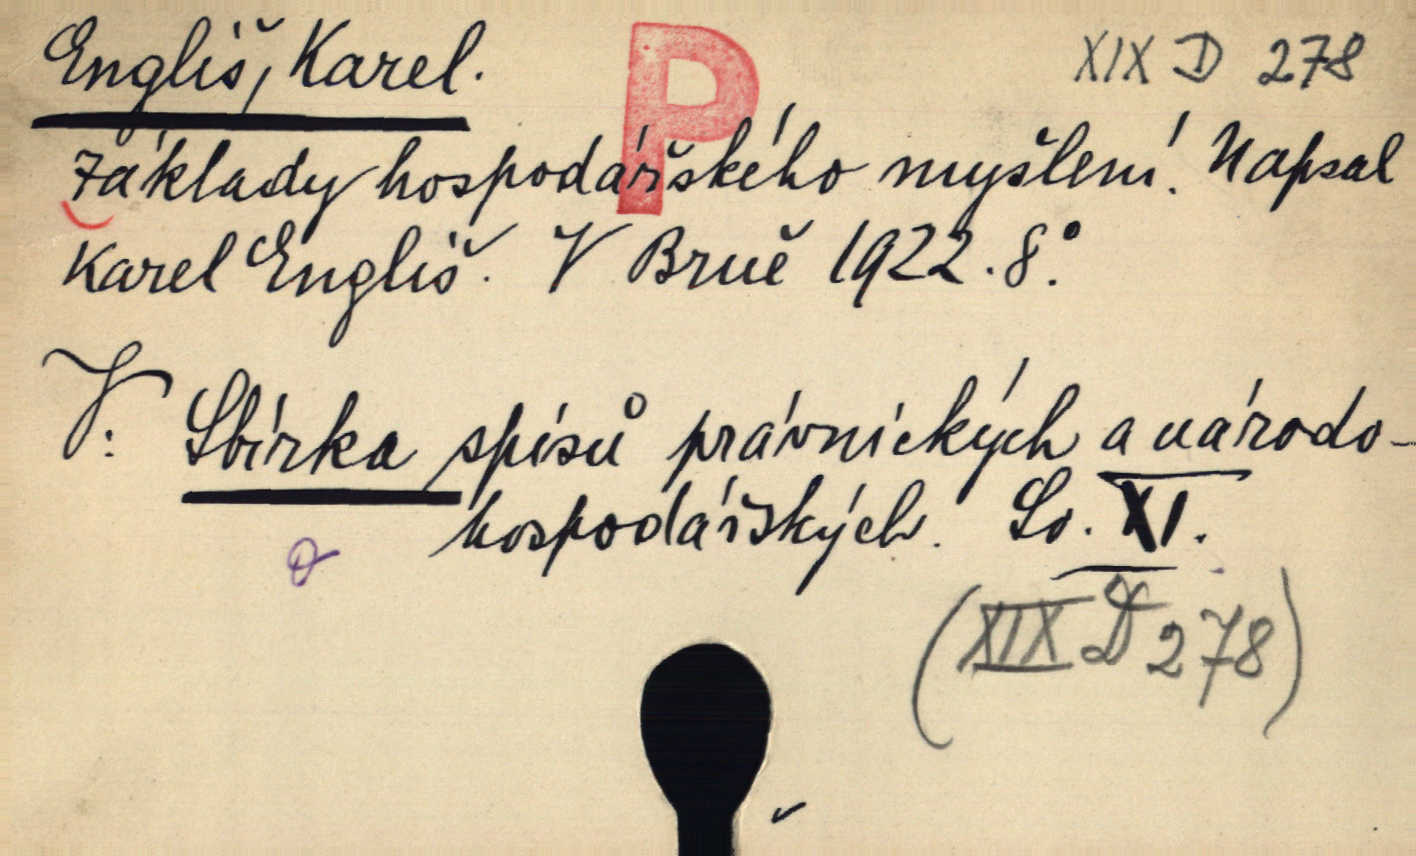 Engliš, Karel.
P
XIX D 278
Základy hospodářského myšlení. Napsal
Karel Engliš. V Brně 1922. 8°.
V: Sbírka spisů právnických a národo-
hospodářských. Sv. XI.
(XIX D 278)